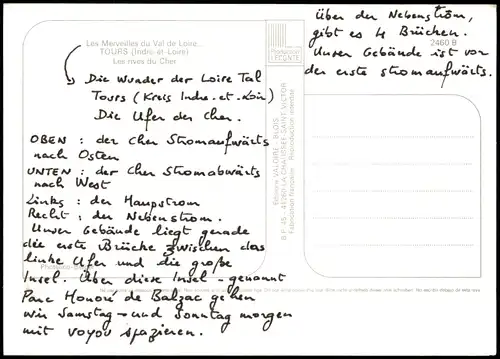 Les Merveilles du Val de Loire...
TOURS (Indre-et-Loire)
Les rives du Cher
Die Wunder der Loire Tal
Tours (Kreis Indre-et-Loir)
Die Ufer des Cher.
OBEN : der Cher Stromaufwärts
nach Osten
UNTEN : der Cher Stromabwärts
nach West
Links : der Haupstrom
Recht : der Nebenstrom.
Unser Gebäude liegt gerade
die erste Brüche zwischen das
linke Ufer und die große
Insel. Über diese Insel - genannt
Parc Honoré de Balzac gehen
wir Samstag - und Sonntag morgen
mit voyou spazieren.
über der Nebenstrom,
gibt es 4 Brüchen.
2460 B
Unser Gebäude ist vor
der erste stromaufwärts.
Editions VALOIRE - BLOIS
B.P. 45 - 41260 LA CHAUSSEE-SAINT-VICTOR
Fabrication française - Reproduction interdite